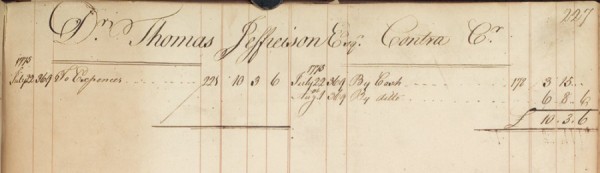 227
Dr. Thomas Jefferson Esqr. Contra Cr.
1773 1773
July 22 369 To Expences 228 10 3 6 July 22 369 By Cash 178 3 15
Augt 369 By ditto 6 8 6
£ 10 3 6